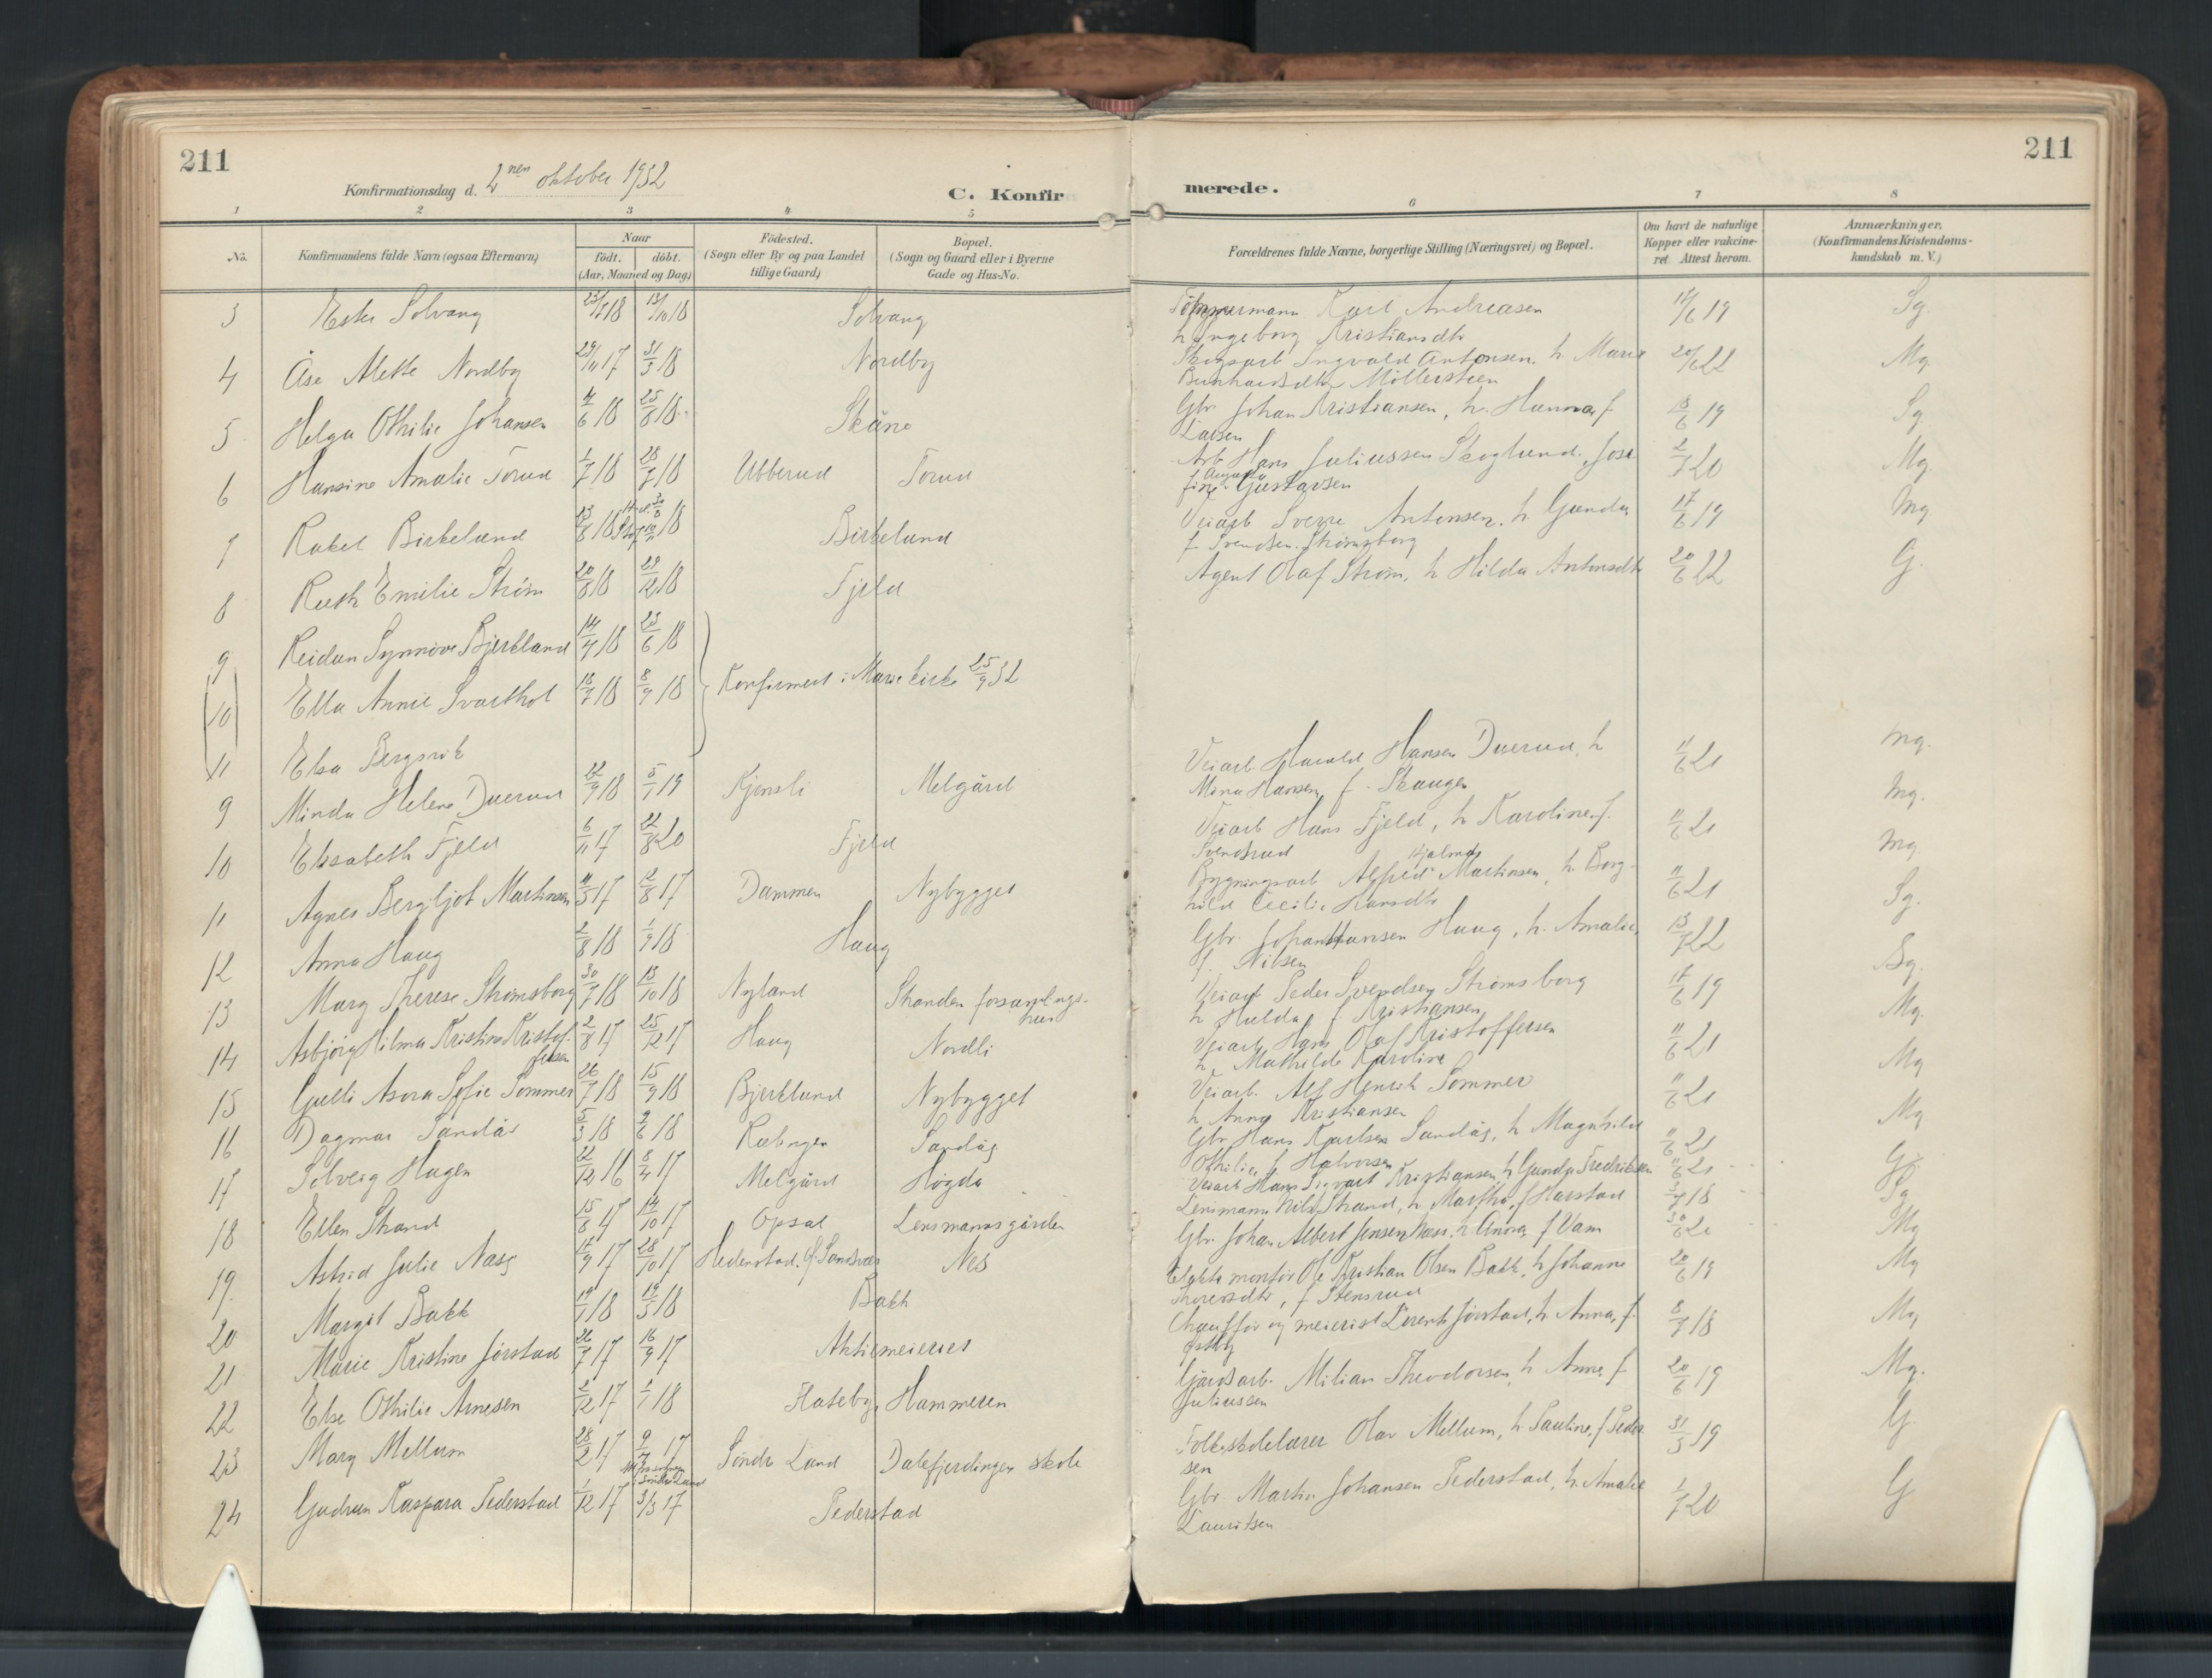 211
Konfirmationsdag d. 2nen oktober 1932
C. Konfirmerede.
211
1 2 3 4 5 6 7 8
No.
Konfirmandens fulde Navn (ogsaa Efternavn)
Naar
født. døbt.
(Aar, Maaned og Dag)
Fødested.
(Sogn eller By og paa Landet
tillige Gaard)
Bopæl.
(Sogn og Gaard eller i Byerne
Gade og Hus-No.
Forældrenes fulde Navne, borgerlige Stilling (Næringsvei) og Bopæl.
Om havt de naturlige
Kopper eller vakcine-
ret. Attest herom.
Anmærkninger.
(Konfirmandens Kristendoms-
kundskab m. V.)
3 Ester Solvang 13/10 18 Solvang Tømmermann Karl Andreasen 19 Sg.
h. Ingeborg Kristiansdtr
4 Åse Mette Nordby 29/11 17 31/3 18 Nordby Skogsarb Ingvald Antonsen, h. Marie 20/6 22 Mg.
Bernhardsdtr Møllersteen
5 Helga Othilie Johansen 4/6 18 25/8 18 Skåne Gbr. Johan Kristiansen, h. Hanna, f 18/6 19 Sg.
Larsen
6 Hansine Amalie Torud 1/7 18 28/7 18 Ubberud Torud Arb Hans Juliussen Skoglund, Jose 2/7 20 Mg
fine Augusta Gustavsen
7 Rakel Birkelund 13/8 18 Birkelund Veiarb Sverre Antonsen, h. Gunda 17/6 19 Mg
f. Svendsen. Strømsborg
8 Ruth Emilie Strøm 20/8 18 29/12 18 Fjeld Agent Olaf Strøm, h Hilda Antonsdtr 20/6 22 G.
9 Reidun Synnøve Bjerkland 14/4 18 23/6 18
(10) Ella Annie Svarthol 18/7 18 8/9 18 Konfirmert i Marie kirke 25/9 32
11 Elsa Bergsvik
9 Minda Helene Duerud 22/9 18 5/1 19 Kjensli Melgård Veiarb. Harald Hansen Duerud, h 11/6 21 Mg.
Mina Hansen, f. Skaugen
10 Elisabeth Fjeld 6/11 17 22/8 20 Fjeld Veiarb Hans Fjeld, h Karoline, f. 11/6 21 Mg.
Svendsrud
11 Agnes Bergljot Martinsen 4/5 17 12/8 17 Dammen Nybygget Bygningsarb Alfred Hjalmar Martinsen, h. Borg- 11/6 21 Mg
hild Cecilie Hansdtr
12 Anna Haug 2/8 18 1/9 18 Haug Gbr. Johan Hansen Haug, h. Amalie, 13/7 22 Sg.
f. Nilsen
13 Mary Therese Strømsborg 30/7 18 13/10 18 Nyland Stranden forsamlings-
hus Veiarb Peder Svendsen Strømsborg 17/6 19 Sg.
h Hulda f. Kristiansen
14 Asbjørg Hilma Kristine Kristof-
fersen 2/8 17 25/12 17 Haug Nordli Veiarb Hans Olaf Kristoffersen 11/6 21 Mg.
h. Mathilde Karoline
15 Gulli Asora Sofie Sommer 26/7 18 15/9 18 Bjerklund Nybygget Veiarb. Alf Henrik Sommer 11/6 21 Mg
h Anna Kristiansen
16 Dagmar Sandås 5/3 18 2/6 18 Sandås Gbr. Hans Karlsen Sandås, h Magnhild 11/6 21 Mg
Othilie, f. Halvorsen
17 Solveig Hagen 22/12 16 8/4 17 Melgård Høgda Veiarb Hans Sigvart Kristiansen, h Gunda Fredriksen 11/6 21 G.
18 Ellen Strand 15/8 17 14/10 17 Opsal Lensmannsgården Lensmann Nils Strand, h Martha, f Harstad 3/7 18 Sg
19 Astrid Julie Næss 17/9 17 28/10 17 Hedenstad, Sandsvær Nes Gbr. Johan Albert Jensen Næss, h. Anna, f Vam 30/6 20 Mg
20 Margit Bakk 19/1 18 19/5 18 Bakk Elektr montør Ole Kristian Olsen Bakk, h Johanne 20/6 19 Mg
Thorersdtr, f Stensrud
21 Marie Kristine Jørstad 26/7 17 16/9 17 Aktiemeieriet Chauffør og meierist Lorents Jørstad, h. Anna, f. 8/7 18 Mg
Østby
22 Else Othilie Arnesen 2/12 17 1/1 18 Flateby, Hammeren Gårdsarb. Milian Theodorsen, h Anna f 20/6 19 Mg.
Juliussen
23 Mary Mellum 28/2 17 9/4 17 Søndre Land Dalefjerdingen skole Folkeskolelærer Olav Mellum, h Pauline, f Peder 31/5 19 G.
sen
24 Gudrun Kaspara Pederstad 1/12 17 3/3 17 Pederstad Gbr. Martin Johansen Pederstad, h. Amalie 1/7 20 G
Lauritsen